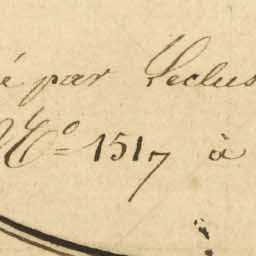 é par Leclus
No 1517 à